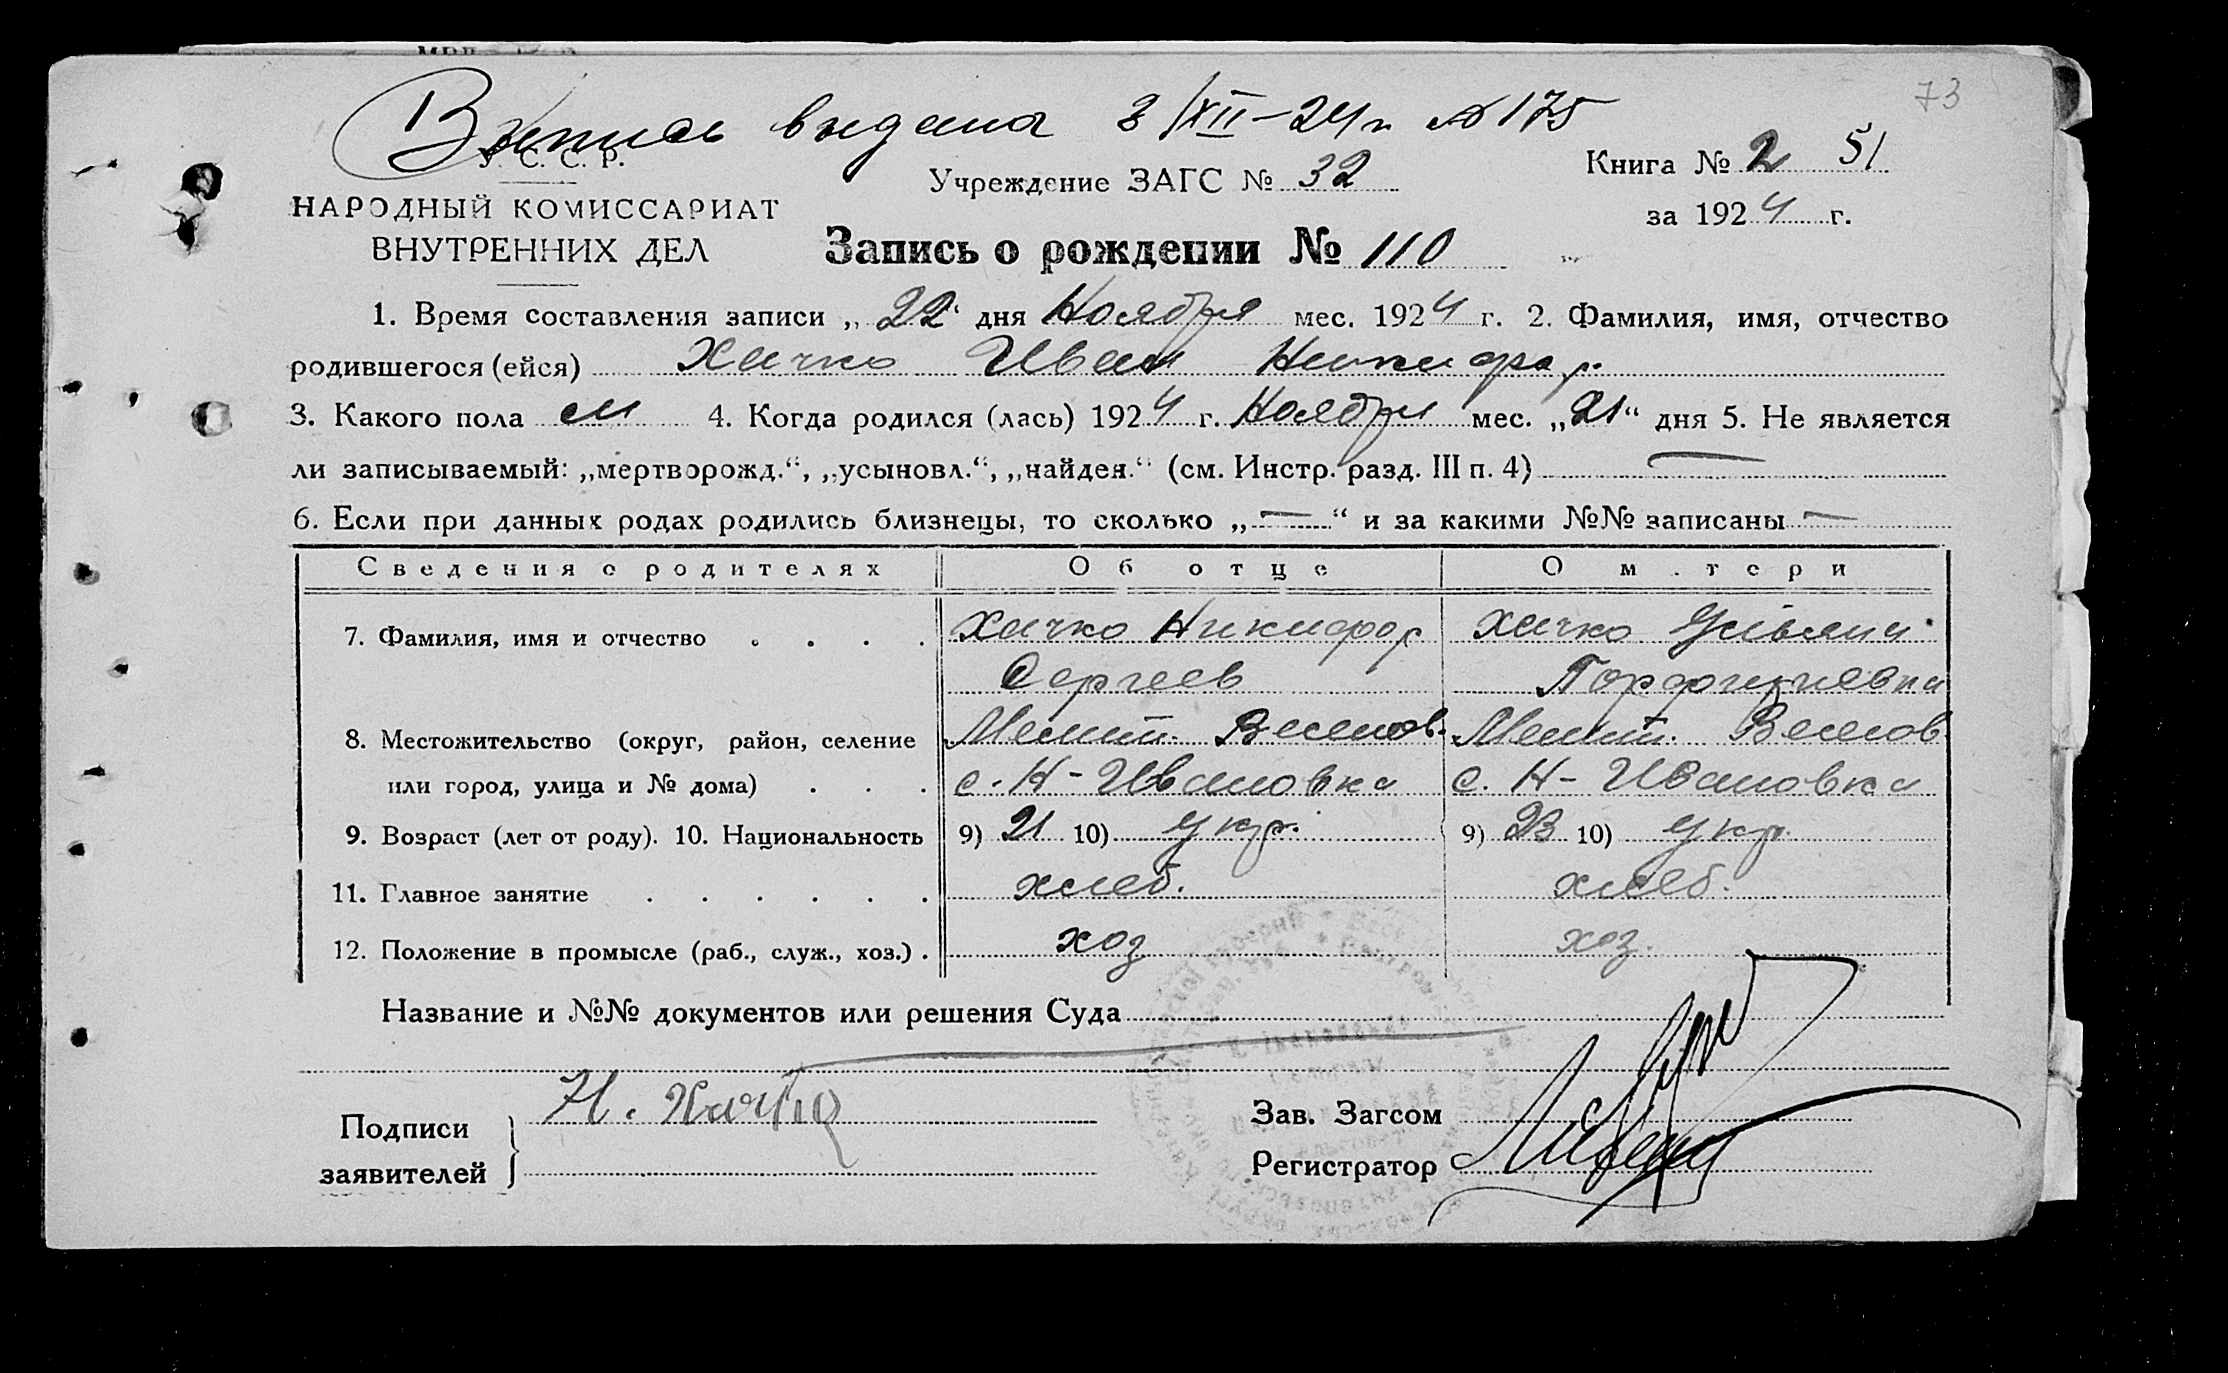 73
Выпись выдана 3/XII-24 г. № 175
У. С. С. Р.
НАРОДНЫЙ КОМИССАРИАТ
ВНУТРЕННИХ ДЕЛ
Учреждение ЗАГС № 32
Книга № 2 51
за 1924 г.
Запись о рождении № 110
1. Время составления записи „22“ дня Ноября мес. 1924 г. 2. Фамилия, имя, отчество
родившегося (ейся) Хачко Иван Никифор.
3. Какого пола м 4. Когда родился (лась) 1924 г. Ноября мес. „21“ дня 5. Не является
ли записываемый: „мертворожд.“, „усыновл.“, „найден.“ (см. Инстр. разд. III п. 4) —
6. Если при данных родах родились близнецы, то сколько „—“ и за какими №№ записаны —
Сведения о родителях Об отце О матери
7. Фамилия, имя и отчество . . . . Хачко Никифор Хачко Ульяна
Сергеев Порфириевна
8. Местожительство (округ, район, селение Мелит. Веселов. Мелит. Веселов
или город, улица и № дома) . . . с. Н-Ивановка с. Н-Ивановка
9. Возраст (лет от роду). 10. Национальность 9) 21 10) укр. 9) 23 10) укр.
11. Главное занятие . . . . . . хлеб. хлеб.
12. Положение в промысле (раб., служ., хоз.) . хоз хоз.
Название и №№ документов или решения Суда
Подписи
заявителей
Н. Хачко
Зав. Загсом
Регистратор